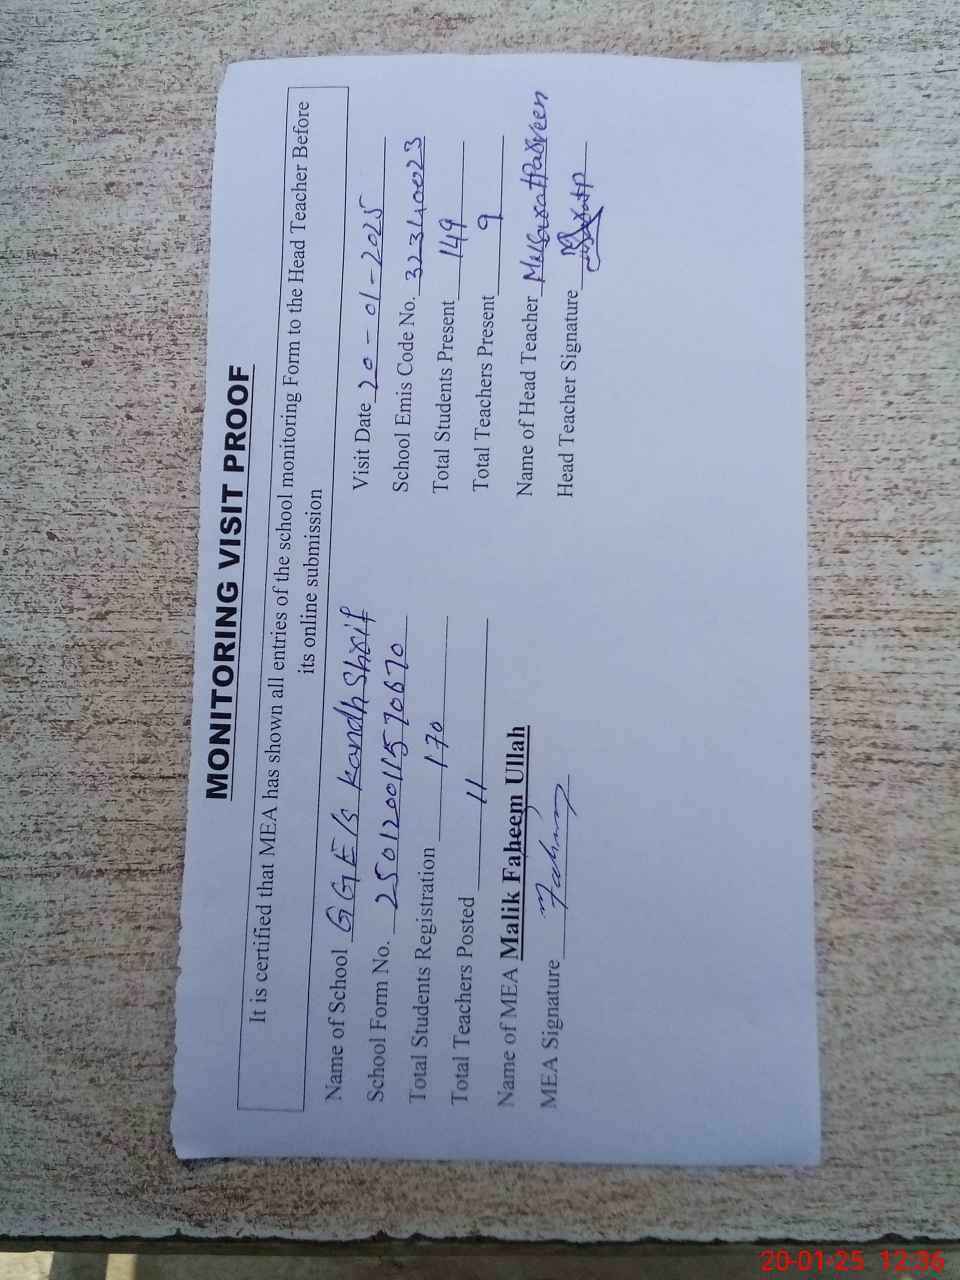 MONITORING VISIT PROOF
It is certified that MEA has shown all entries of the school monitoring Form to the Head Teacher Before
its online submission
Name of School GGE/s Kandh Sharif
Visit Date 20-01-2025
School Form No. 250120011570670
School Emis Code No. 32340023
Total Students Registration 170
Total Students Present 149
Total Teachers Posted 11
Total Teachers Present 9
Name of MEA Malik Faheem Ullah
Name of Head Teacher Parveen
MEA Signature Fahim
Head Teacher Signature
20-01-25 12:36